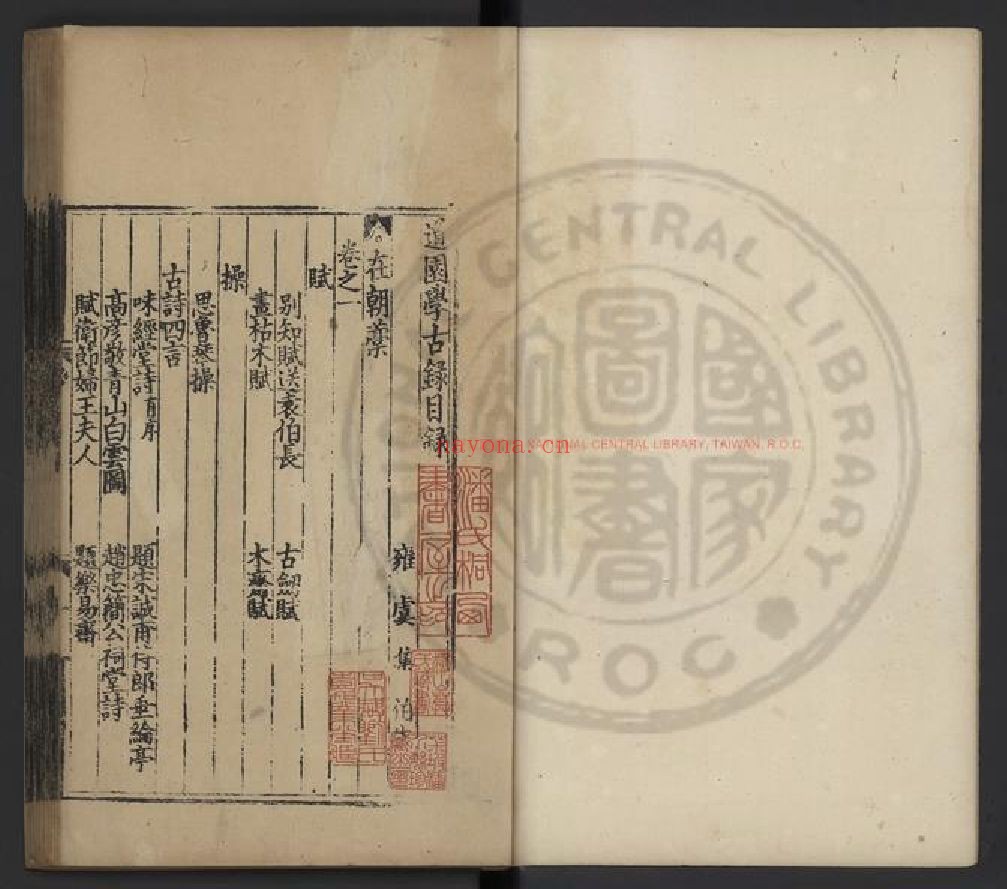 道園學古録目録
雍 虞 集 伯生
在朝藁
卷之一
賦
别知賦送袁伯長 古劔賦
畫枯木賦 木齋賦
操
思魯琴操
古詩四言
味經堂詩有序 題宋誠甫侍郎垂綸亭
高彦敬青山白雲圖 趙忠簡公祠堂詩
賦衛節婦王夫人 題樂易齋
國家圖書館
NATIONAL CENTRAL LIBRARY
ROC
NATIONAL CENTRAL LIBRARY, TAIWAN, R.O.C.
kayona.cn